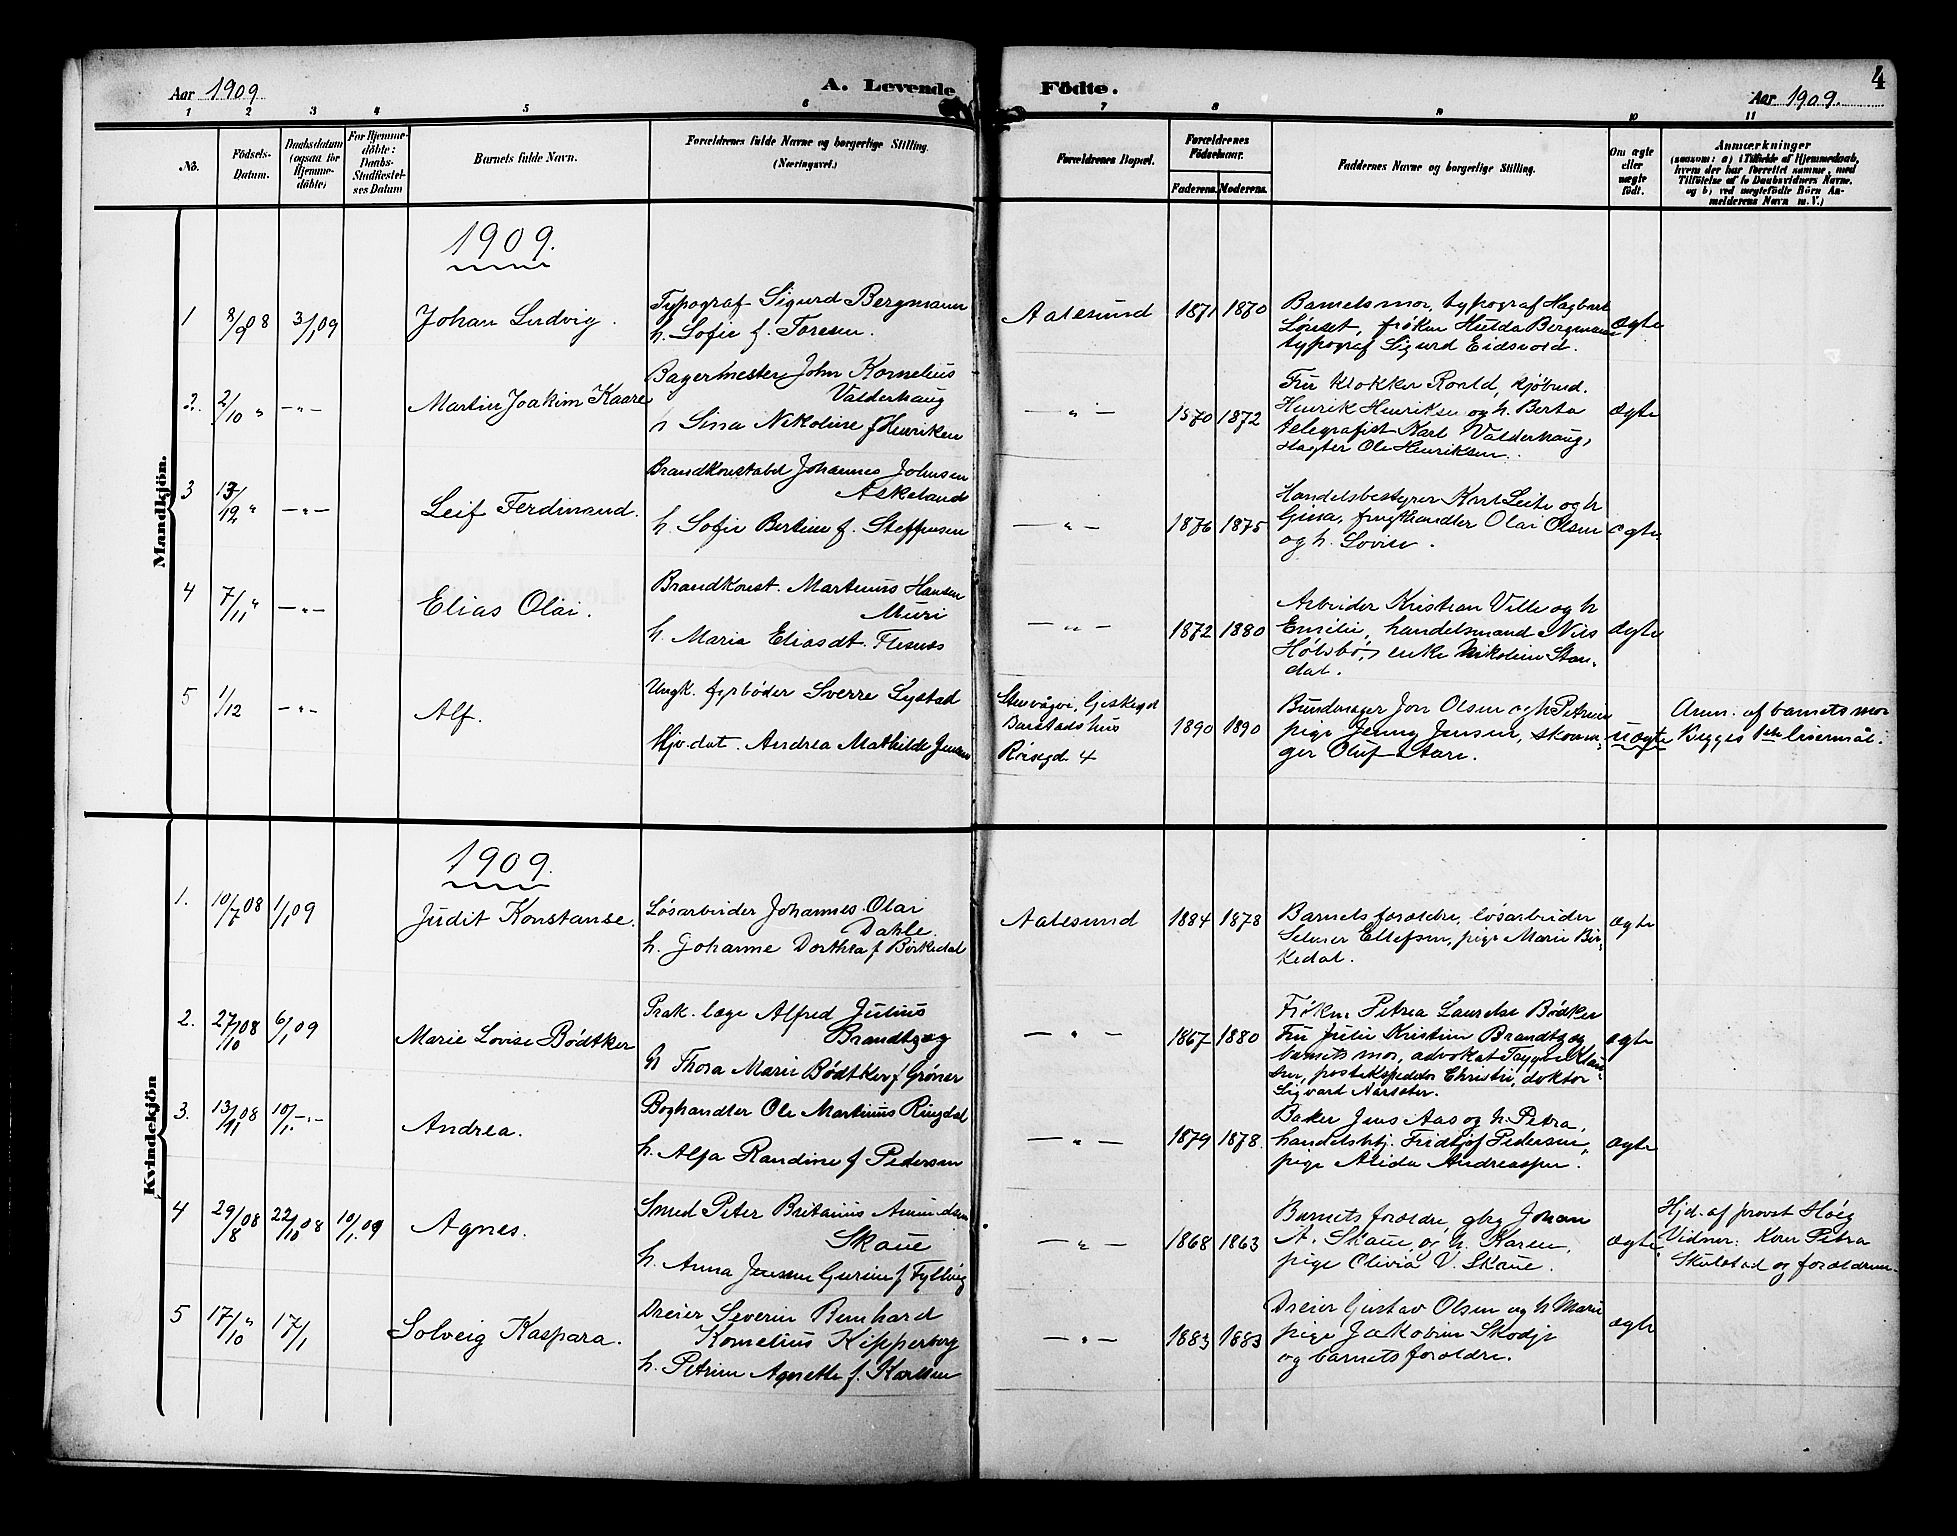 Aar 1909
A. Levende Födte.
4
Aar 1909.
1 2 3 4 5 6 7 8 9 10 11
No.
Födsels-
Datum.
Daabsdatum
(ogsaa for
Hjemme-
döbte)
For Hjemme-
döbte:
Daabs-
Stadfæstel-
ses Datum
Barnets fulde Navn.
Forældrenes fulde Navne og borgerlige Stilling.
(Næringsvei.)
Forældrenes Bopæl.
Forældrenes
Födselsaar.
Faderens. Moderens.
Faddernes Navne og borgerlige Stilling.
Om ægte
eller
uægte
födt.
Anmærkninger
(saasom: a) i Tilfælde af Hjemmedaab,
hvem der har forrettet samme, med
Tilföielse af to Daabsvidners Navne,
og b) ved uægtefödte Börn An-
melderens Navn m. V.)
Mandkjön.
1909.
1 8/9 08 3/1 09
Johan Ludvig.
Typograf Sigurd Bergmann
h. Sofie f. Toresen.
Aalesund
1871 1870
Barnets mor, typograf Hagbart
Lönset, frøken Hulda Bergmann
typograf Sigurd Eidsvold.
ægte
2. 2/10 " —"—
Martin Joakim Kaare
Bagermester John Kornelius
Valderhaug
h Sina Nikoline f Henriksen
—"—
1870 1872
Fru klokker Roald, kjøbmd.
Henrik Henriksen og h. Berta
telegrafist Karl Valderhaug,
Ole Henriksen.
ægte
3 13/12 " —"—
Leif Ferdinand.
Brandkonstabel Johannes Johnsen
Askeland
h. Sofie Bertine f. Steffensen
—"—
1876 1875
Handelsbestyrer Karl Leite og h
Gina, frugthandler Olai Olsen
og h. Lovise.
ægte
4 7/11 " —"—
Elias Olai.
Brandkonst. Martinus Hansen
Muri
h. Maria Eliasdt. Flesnes
—"—
1872 1880
Arbeider Kristian Ville og h
Emilie, handelsmand Nils
enke Nikoline Stan-
dal.
ægte
5 1/12 —"—
Alf.
Ungk. fyrbøder Sverre Lystad
Hjv. dat. Andrea Mathilde Jensen
Stenvågvei, Giskegd
Barstads hus
Risegd. 4
1890 1890
Bundmager Jon Olsen og h Petrine
pige Jenny Jensen, skoma-
ger Oluf Aare.
uægte
Anm. af barnets mor
Begges 1ste leiermål.
Kvindekjön
1909.
1. 10/7 08 1/1 09
Judit Konstanse.
Løsarbeider Johannes Olai
Dahle.
h. Johanne Dorthea f Børkedal
Aalesund
1884 1878
Barnets forældre, løsarbeider
Selmer Ellefsen, pige Marie Bir-
kedal.
ægte
2. 27/10 08 6/1 09
Marie Lovise Bødtker
Prak. læge Alfred Julius
Brandtzæg
h Thora Marie Bødtker f Grøner
—"—
1867 1880
Frøken Petrea Lauretse Bødker
Fru Julie Kristine Brandtzæg
barnets mor, advokat Tygge Klau-
sen, postekspeditør Christie, doktor
Sigvard Aarsæter.
ægte
3. 13/11 08 10/1 —"—
Andrea.
Boghandler Ole Martinus Ringdal
h. Alfa Randine f Pedersen
—"—
1879 1878.
Baker Jens Aas og h. Petra,
handelsbtj. Fridtjof Pedersen,
pige Alida Andreassen.
ægte
4 29/8 08 22/10 08 10/1 09
Agnes.
Smed Peter Britanius Amundsen
Skaue
h. Anna Jensine Gurine f Fylling
—"—
1868 1863
Barnets forældre, gbg Johan
A. Skaue, og h. Karen,
pige Olivia V. Skaue.
ægte
Hjd. af provst Höeg
Vidner: Kone Petra
Skulstad og forældrene.
5 17/10 " 17/1
Solveig Kaspara.
Dreier Severin Bernhard
Kornelius Kipperberg
h. Petrine Agnethe f. Karlsen
—"—
1883 1883
Dreier Gustav Olsen og h Marie
pige Jakobine Skodje
og barnets forældre.
ægte